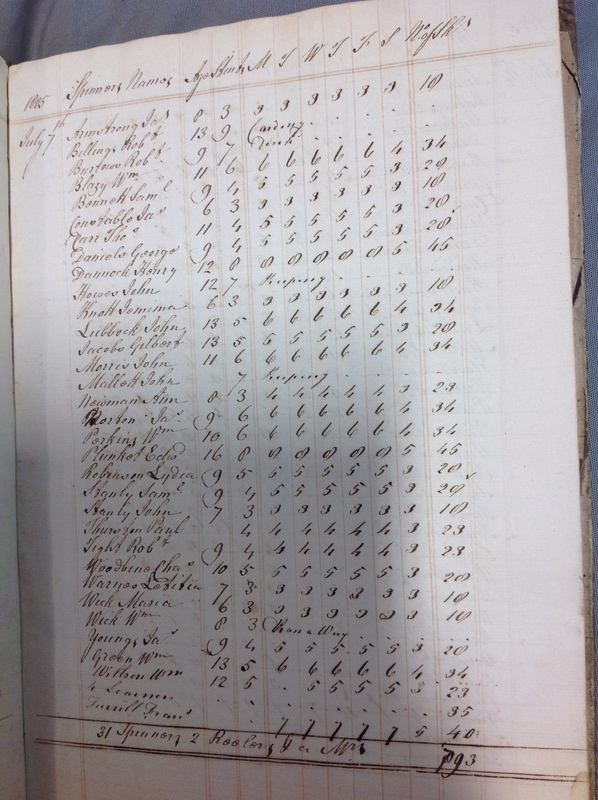 1805 Spinners Names Age Stint M T W T F S No of Sks
July 7th Armstrong Jas 8 3 3 3 3 3 3 3 18
Billings Robt 13 9 Carding
Burtows Robt 9 7 Ditto
Blazy Wm 11 6 6 6 6 6 6 4 34
Bennett Saml 9 4 5 5 5 5 5 3 28
Constable Jas 6 3 3 3 3 3 3 3 18
Carr Thos 11 4 5 5 5 5 5 3 28
Daniels George 9 4 5 5 5 5 5 3 28
Dannock Henry 12 8 8 8 8 8 8 5 45
Howes John 12 7 Keeping
Knott Jemima 6 3 3 3 3 3 3 3 18
Lubbock John 13 5 6 6 6 6 6 4 34
Jacobs Gilbert 13 5 5 5 5 5 5 3 28
Morris John 11 6 6 6 6 6 6 4 34
Mallett John 7 Keeping
Newman Ann 8 3 4 4 4 4 4 3 23
Norton Jas 9 6 6 6 6 6 6 4 34
Perkins Wm 10 6 6 6 6 6 6 4 34
Plunket Edwd 16 8 8 8 8 8 8 5 45
Robinson Lydia 9 5 5 5 5 5 5 3 28
Stanly Saml 9 4 5 5 5 5 5 3 28
Stanly John 7 3 3 3 3 3 3 3 18
Thurston Paul 4 4 4 4 4 4 3 23
Tight Robt 9 4 4 4 4 4 4 3 23
Woodbine Chas 10 5 5 5 5 5 5 3 28
Warnes Letitia 7 3 3 3 3 3 3 3 18
Wick Maria 6 3 3 3 3 3 3 3 18
Wick Wm 8 3 Ran a Way
Youngs Jas 9 4 5 5 5 5 5 3 28
Green Wm 13 5 6 6 6 6 6 4 34
Willson Wm 12 5 . 5 5 5 5 3 23
4 Learners 35
Turrill Fran 7 7 7 7 7 5 40
31 Spinners 2 Reelers &
793